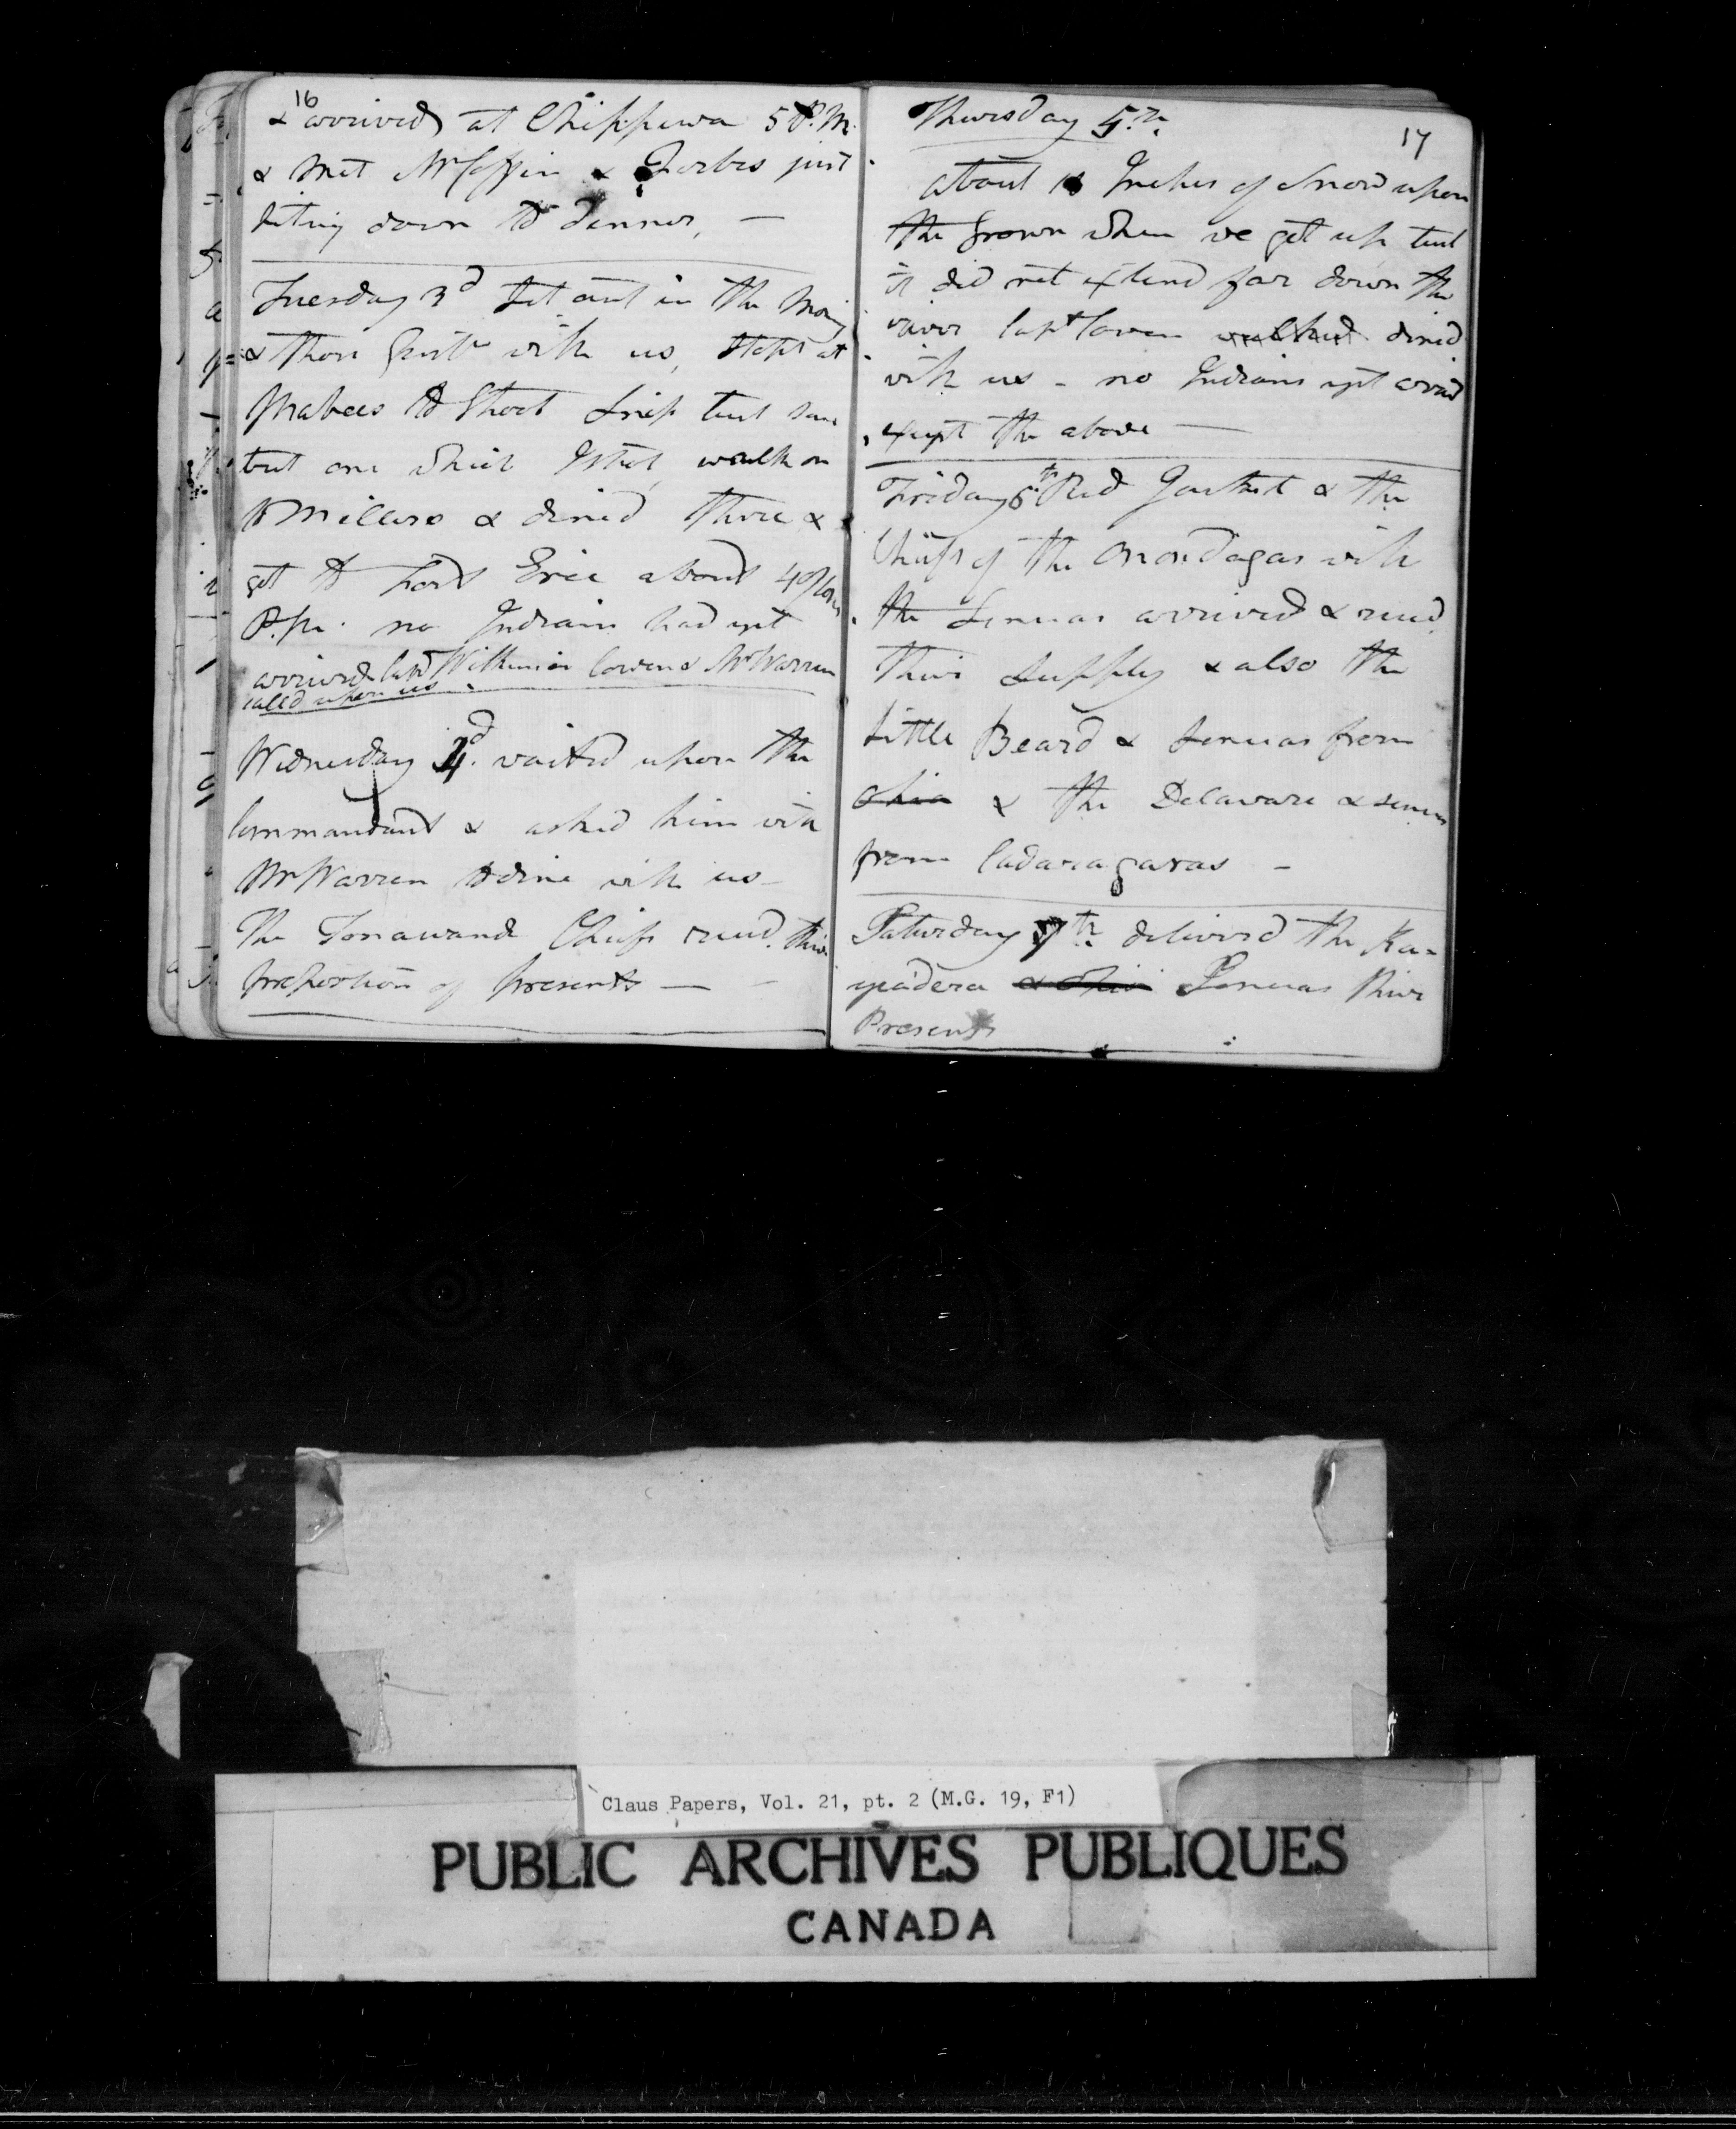 16
& arrived at Chippewa 5 P.M.
& met Mr Coffin & Forbes just
siting down to dinner, —
Tuesday 3d set out in the Morng
& Thos with us, stopt at
Mabees to Shoot Snip but saw
but one which I shot, walk on
to Millers & dined there & 
got to Fort Erie about 4 oClock
P.M. no Indians had yet
arrived Capt Wilkinson Cowen & Mr Warren
called upon us.
Wednesday 4 waited upon the
Commandant & asked him with
Mr Warren to dine with us —
The Tonawanda Chiefs recd. their
proportion of presents —
17
Thursday 5th.
about Inches of Snow upon
the Groun when we got up but
it did not extend far down the
river Capt Cowan walked dined
with us - no Indians yet arrivd
except the above —
Friday 6th Red Jacket & the
Chiefs of the Onondagas with
the Senecas arrived & recd.
their supply & also the
Little Beard & Senecas from
Ohio & the Delaware & Senecas
from Cadaragaras -
Saturday 7th delivered the Ka-
yadera & Ohio Senecas their
Presents
Claus Papers, Vol. 21, pt. 2 (M.G. 19, F1)
PUBLIC ARCHIVES PUBLIQUES
CANADA